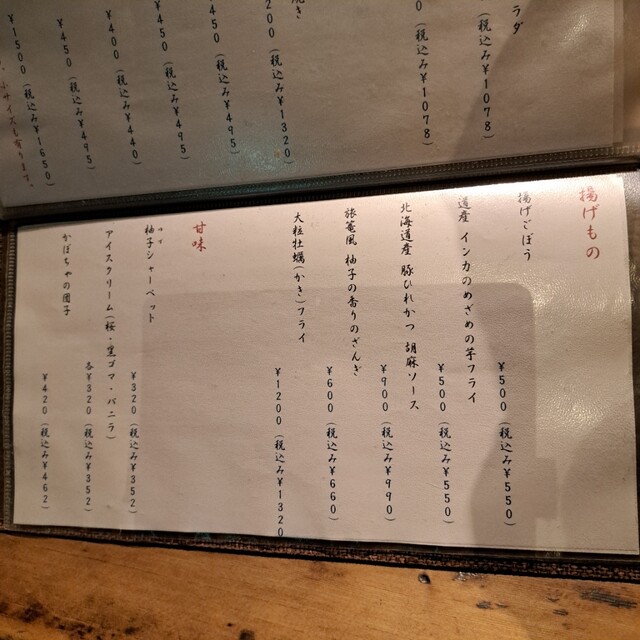 ラダ
¥1078（税込み
0（税込み¥1078）
焼き
200（税込み¥1320）
450（税込み¥495）
¥450（税込み¥495）
¥400（税込み¥440）
¥450（税込み¥495）
¥1500（税込み¥1650）
揚げもの
揚げごぼう
¥500（税込み¥550）
道産 インカのめざめの芋フライ
¥500（税込み¥550）
北海道産 豚ひれかつ 胡麻ソース
¥900（税込み¥990）
旅篭風 柚子の香りのざんぎ
¥600（税込み¥660）
大粒牡蠣（かき）フライ
¥1200（税込み¥1320
甘味
柚子シャーベット
ゆず
¥320（税込み¥352）
アイスクリーム（桜・黒ゴマ・バニラ）
各¥320（税込み¥352）
かぼちゃの団子
¥420（税込み¥462）